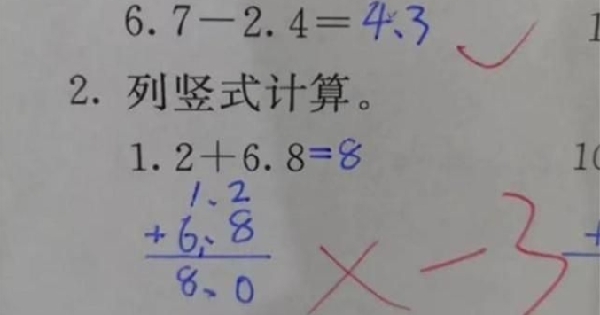 6.7－2.4＝4.3 ✓
2. 列竖式计算。
1.2＋6.8=8
1.2
+6.8
8.0
× －3